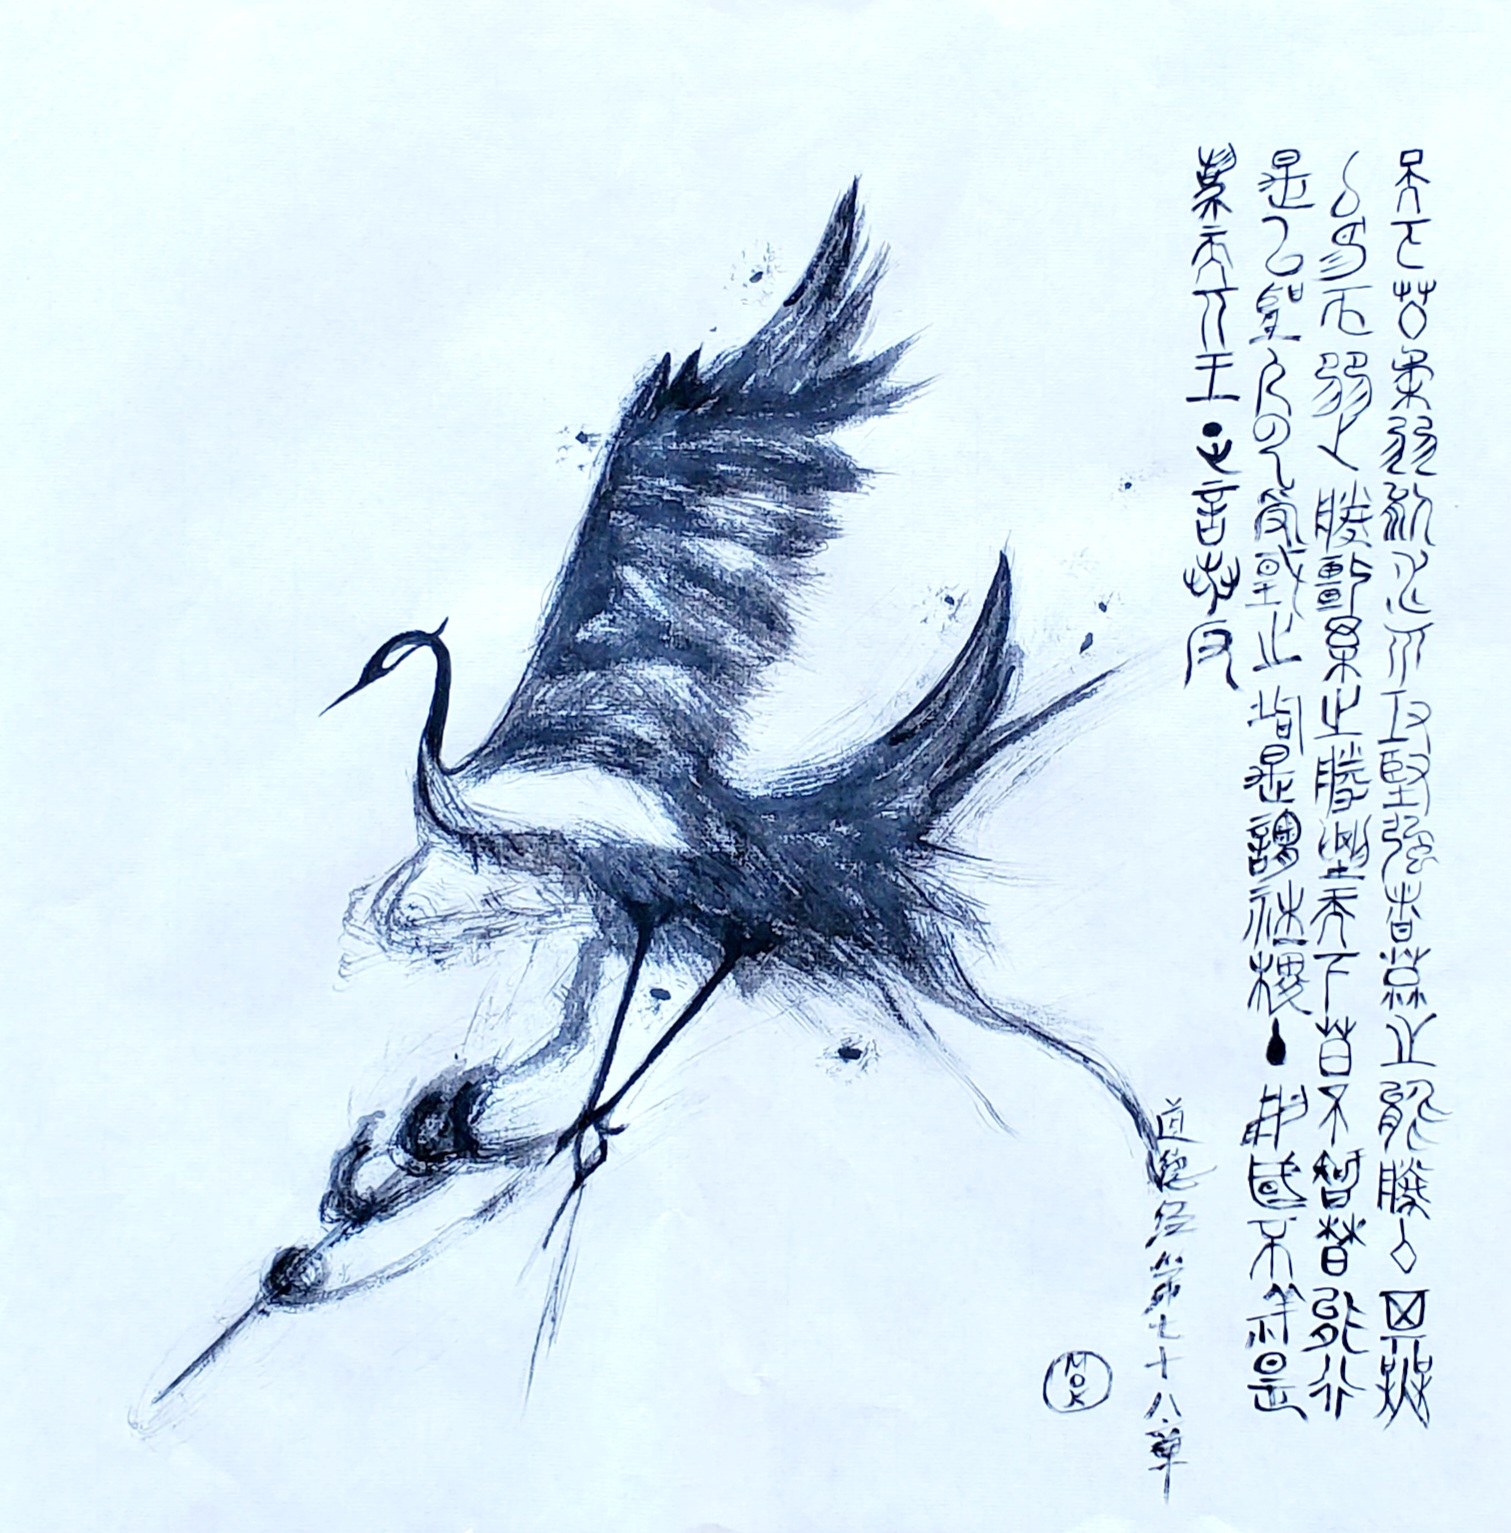 天下莫柔弱於水而攻堅強者莫之能勝以其無
以易之弱之勝強柔之勝剛天下莫不知莫能行
是以聖人云受國之垢是謂社稷主受國不祥是
為天下王正言若反
道德经第七十八章
MOK